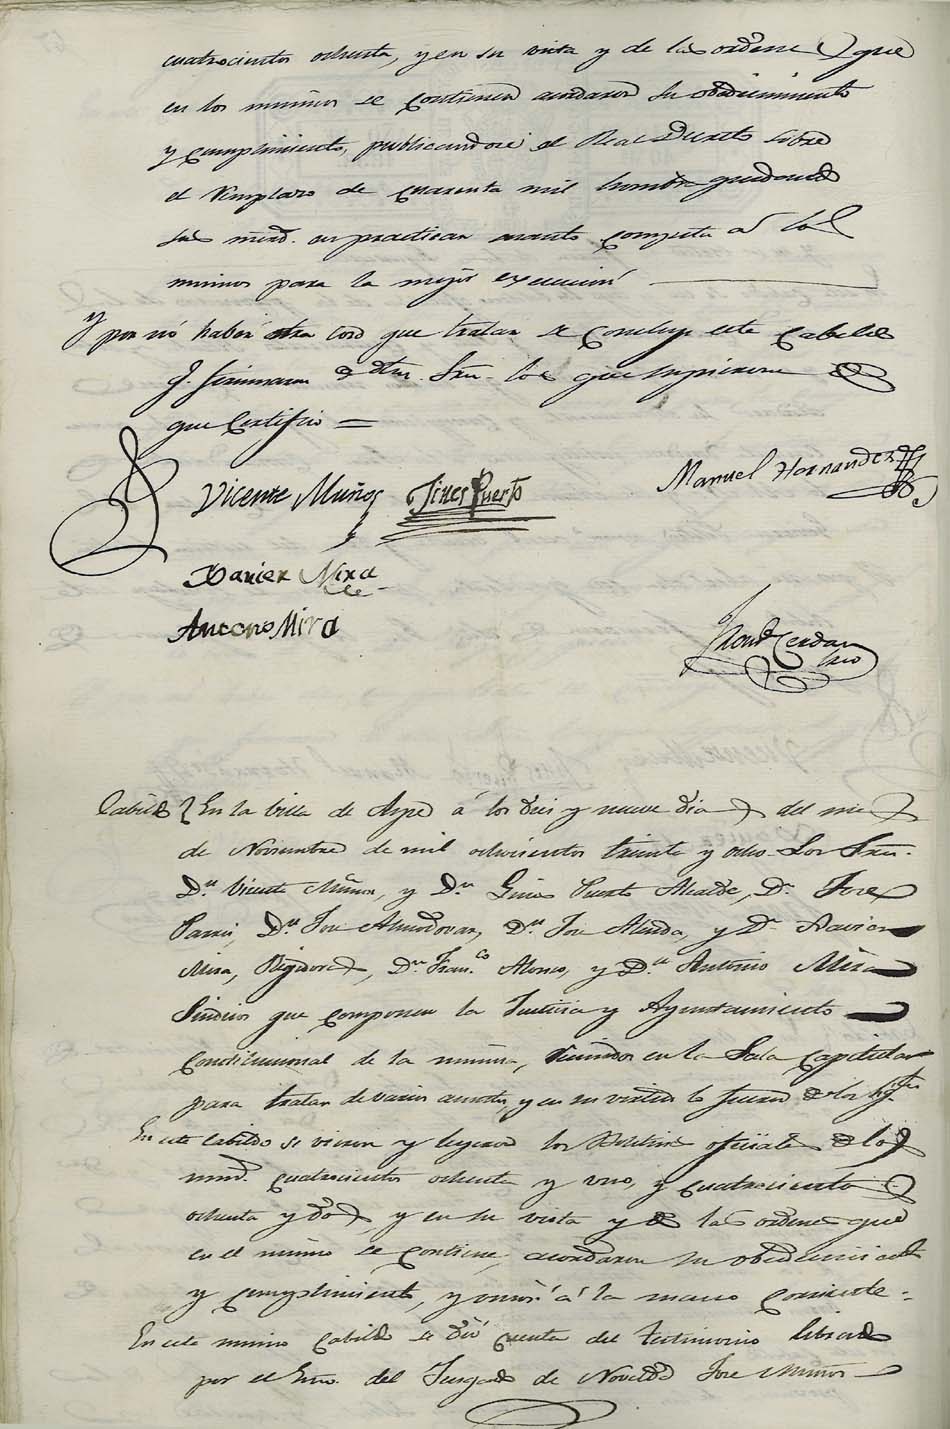 cuatrocientos ochenta, y en su vista y de las ordenes que
en los mismos se contienen acordaron su obedecimiento
y cumplimiento, publicandose el Real Decreto sobre
el remplazo de cuarenta mil hombres quedando
sus mrd. en practicar cuanto competa a los
mismos para la mejor execucion
y por no haber otra cosa que tratar se concluyo este Cabildo
q. firmaron dhos. Sres. los que supieron de
que Certifico =
Vicente Muños Jines Puerto
Manuel Hernandez
Xavier Mira
Antonio Mira
Cerdan
Srio
Cabildo En la Villa de Aspe á los dies y nueve dias del mes
de Noviembre de mil ochocientos treinta y ocho. Los Sres.
Dn. Vicente Muños, y Dn. Gines Puerto Alcaldes, Dn. Jose
Pavia, Dn. Jose Almodovar, Dn. Jose Alenda, y Dn. Xavier
Mira, Regidores, Dn. Franco. Alonso, y Dn. Antonio Mira
Sindicos que componen la Justicia y Ayuntamiento
Constitucional de la misma, reunidos en la Sala Capitular
para tratar de varios asuntos, y en su virtud lo fueron de los sigtes.
En este Cabildo se vieron y leyeron los Boletines oficiales de los
numd. cuatrocientos ochenta y uno, y cuatrocientos
ochenta y dos, y en su vista y de las ordenes que
en el mismo se contiene, acordaron su obedecimiento
y cumplimiento, y unir á la mano corriente.
En este mismo Cabildo se dió cuenta del testimonio librado
por el Eno. del Jusgado de Novelda Jose Muños